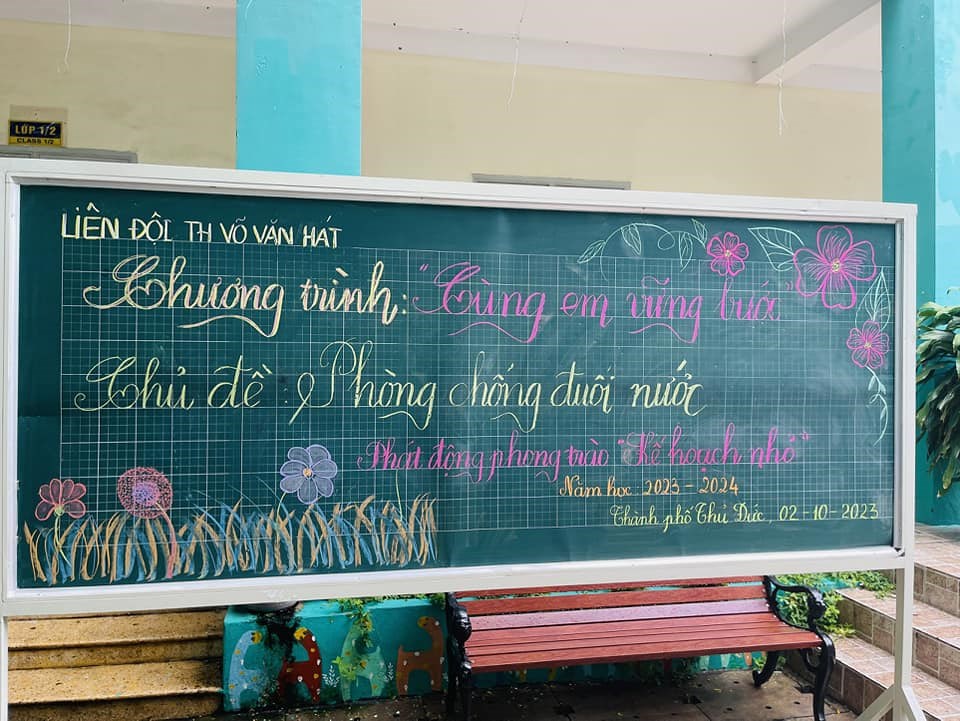 LỚP 1/2
CLASS 1/2
LIÊN ĐỘI TH VÕ VĂN HÁT
Chương trình: "Cùng em vững bước"
Chủ đề: Phòng chống đuối nước
Phát động phong trào "Kế hoạch nhỏ"
Năm học: 2023 - 2024
Thành phố Thủ Đức, 02 - 10 - 2023